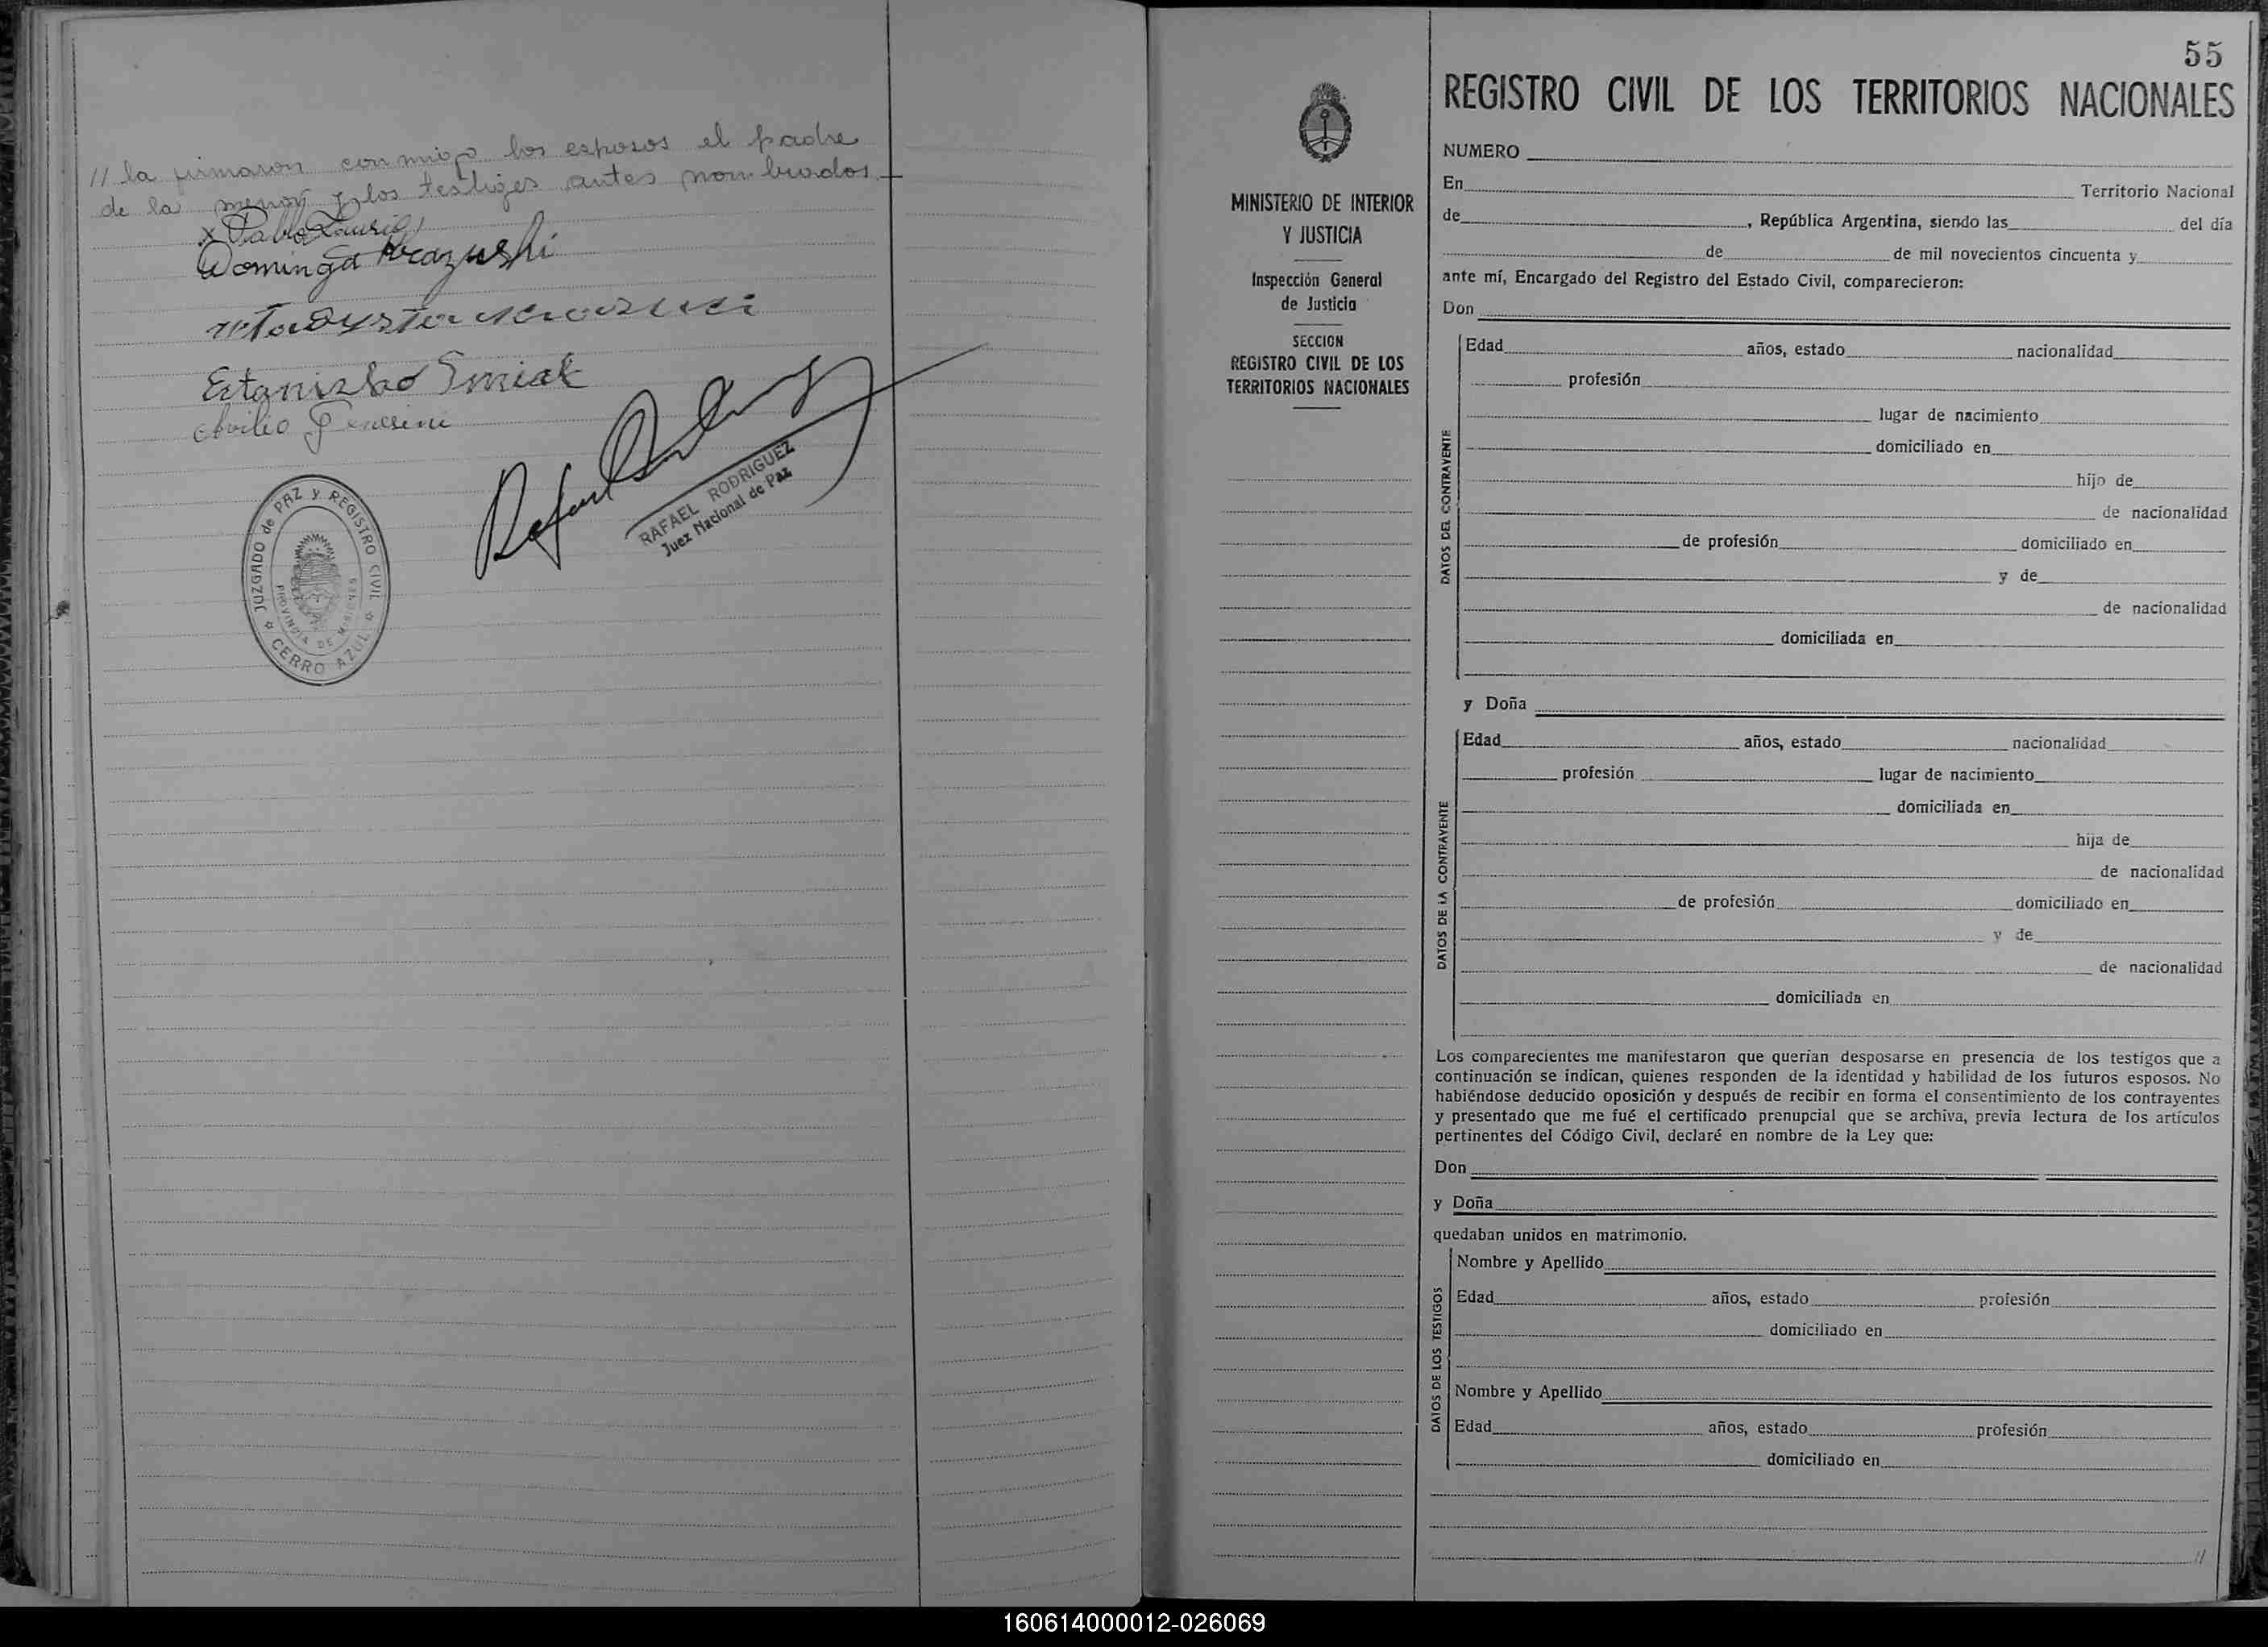 // la firmaron conmigo los esposos el padre
de la menor y los testigos antes nombrados.
x Pablo
Dominga
Estanislao Smiak
RAFAEL RODRIGUEZ
Juez Nacional de Paz
JUZGADO de PAZ y REGISTRO CIVIL
PROVINCIA DE MISIONES
CERRO AZUL
55
MINISTERIO DE INTERIOR
Y JUSTICIA
Inspección General
de Justicia
SECCION
REGISTRO CIVIL DE LOS
TERRITORIOS NACIONALES
REGISTRO CIVIL DE LOS TERRITORIOS NACIONALES
NUMERO
En Territorio Nacional
de , República Argentina, siendo las del día
de de mil novecientos cincuenta y
ante mí, Encargado del Registro del Estado Civil, comparecieron:
Don
DATOS DEL CONTRAYENTE
Edad años, estado nacionalidad
profesión
lugar de nacimiento
domiciliado en
hijo de
de nacionalidad
de profesión domiciliado en
y de
de nacionalidad
domiciliada en
y Doña
DATOS DE LA CONTRAYENTE
Edad años, estado nacionalidad
profesión lugar de nacimiento
domiciliada en
hija de
de nacionalidad
de profesión domiciliado en
y de
de nacionalidad
domiciliada en
Los comparecientes me manifestaron que querían desposarse en presencia de los testigos que a
continuación se indican, quienes responden de la identidad y habilidad de los futuros esposos. No
habiéndose deducido oposición y después de recibir en forma el consentimiento de los contrayentes
y presentado que me fué el certificado prenupcial que se archiva, previa lectura de los artículos
pertinentes del Código Civil, declaré en nombre de la Ley que:
Don
y Doña
quedaban unidos en matrimonio.
DATOS DE LOS TESTIGOS
Nombre y Apellido
Edad años, estado profesión
domiciliado en
Nombre y Apellido
Edad años, estado profesión
domiciliado en
//
160614000012-026069